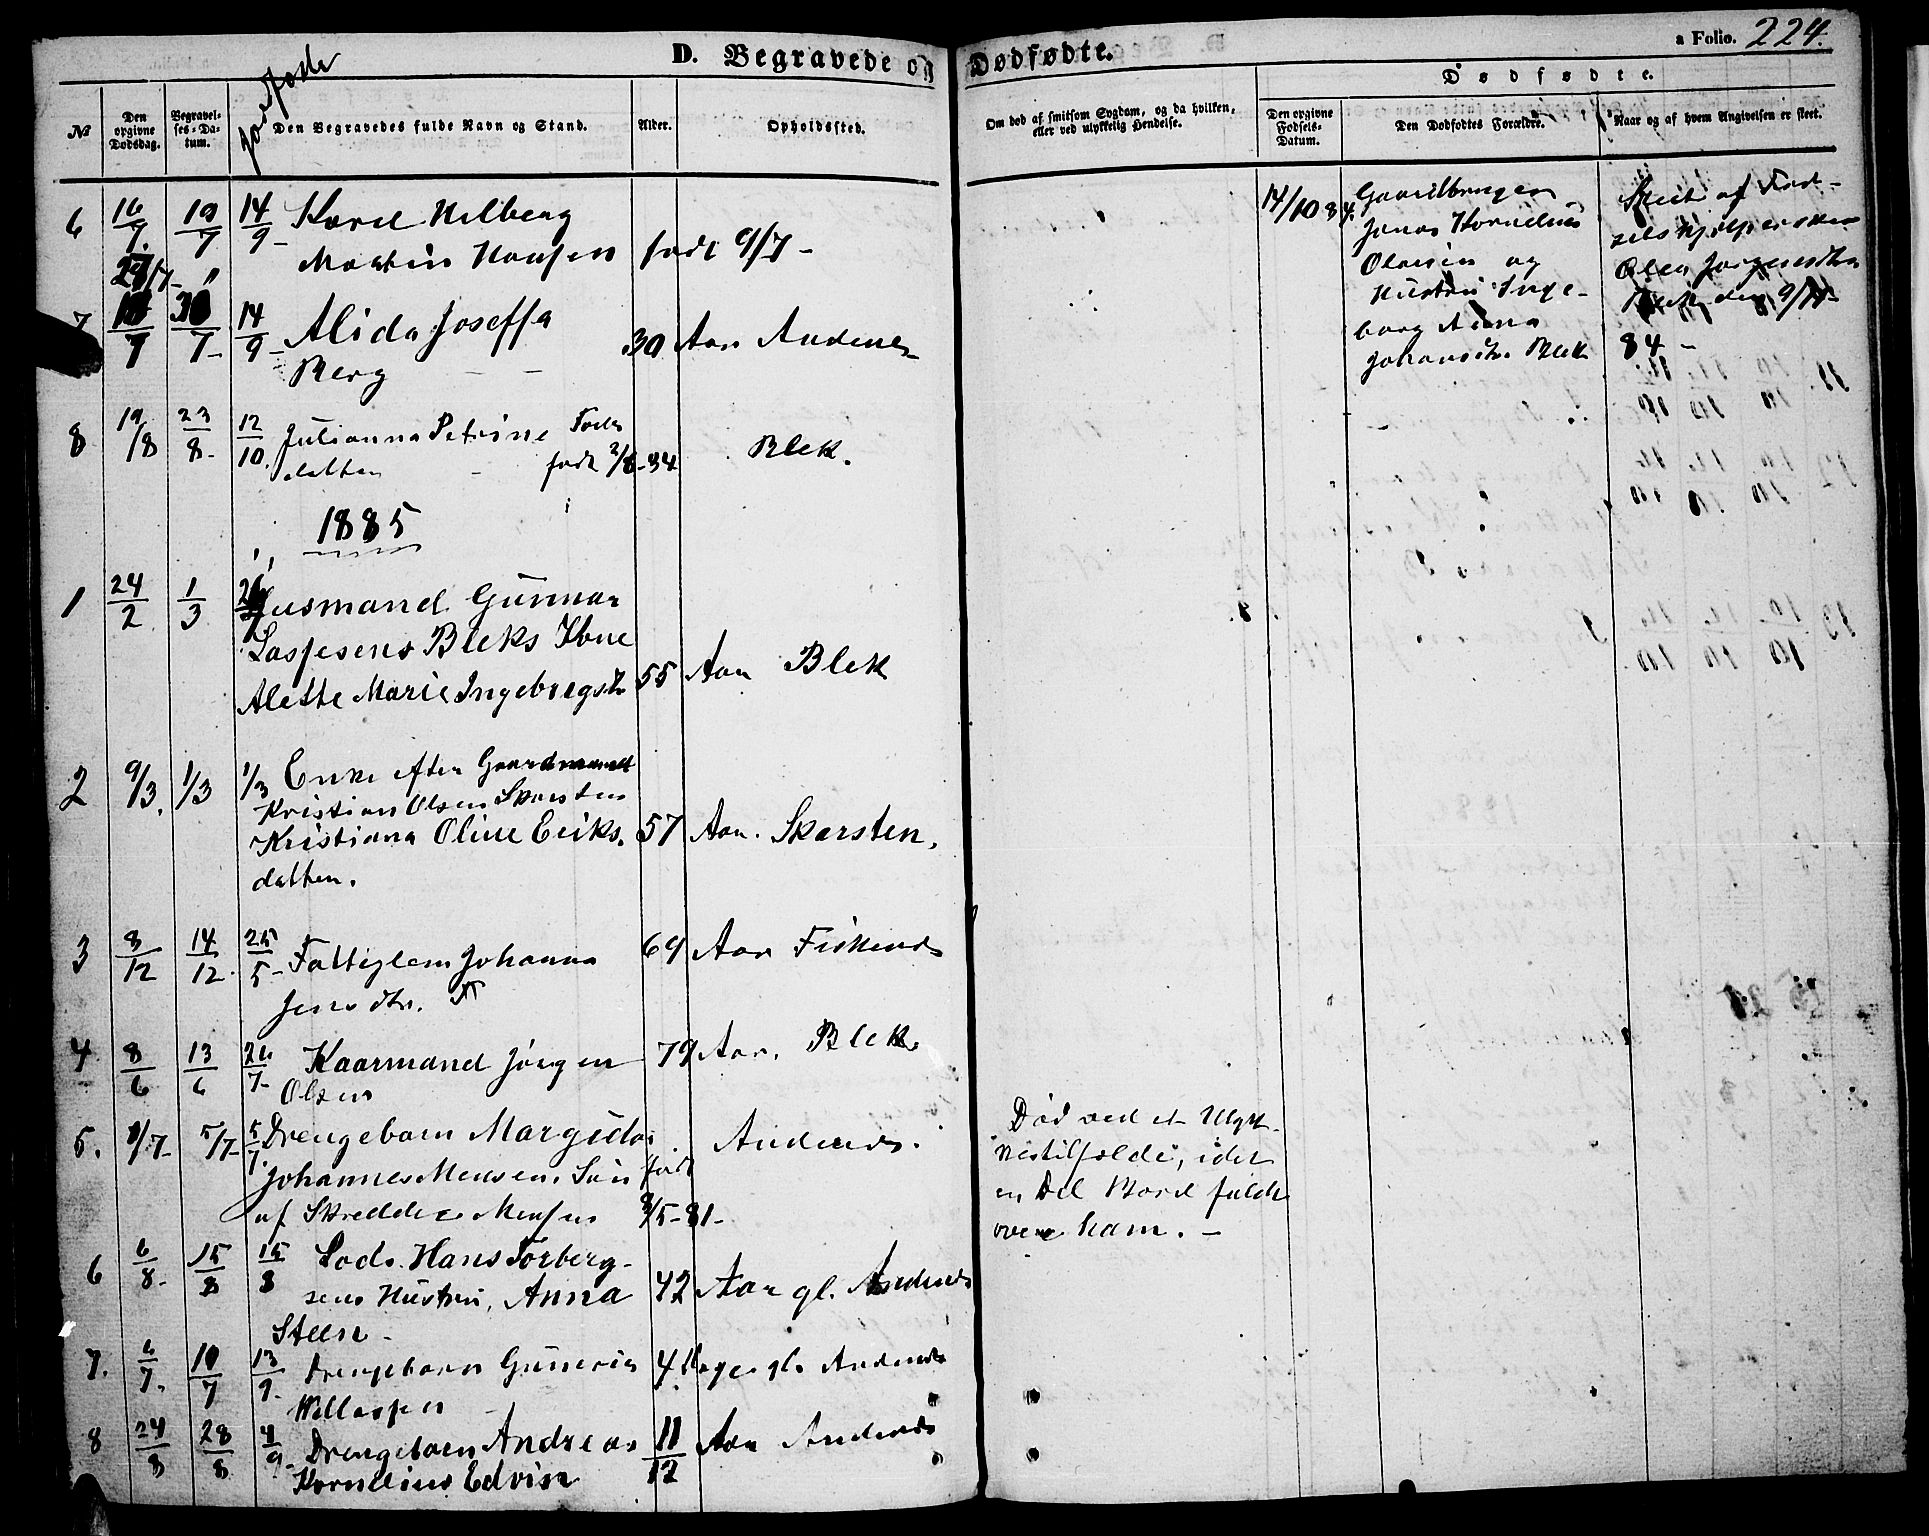 D. Begravede og Dødfødte.
a Folio. 224.
Dødfødte.
No
Den opgivne Dødsdag.
Begravelses-Datum.
Den Begravedes fulde Navn og Stand.
Alder.
Opholdssted.
Om død af smitsom Sygdom, og da hvilken, eller ved ulykkelig Hendelse.
Den opgivne Fødsels-Datum.
Den Dødfødtes Forældre.
Naar og af hvem Angivelsen er skeet.
6 16/7 19/7 14/9 Karel Hilberg
Martin Hansen født 9/7 -
14/10 84. Gaardbruger
Jonas Kornelius
Olaisen og
Hustru Inge-
borg Anna
Johansdtr. Blek
Skeet af Fød-
selshjælpersken
84 -
7 30/7 14/9 Alida Joseffa
Berg 30 Aar Andenes
8 19/8 23/8 12/10 Julianna Petrine
datter født 2/8-84 Blek.
1885
1 24/2 1/3 Husmand Gunnar
Bleks Kone
Alette Marie Ingebrigtsdtr 55 Aar Blek
2 9/3. 1/3 1/3 Enke efter Gaardmand
Kristian Olsen Skarsten
Kristiana Oline Eriks. 57 Aar. Skarsten.
datter.
3 8/12 14/12. 25/5 - Fattiglem Johanna
Jensdtr. 69 Aar Fiskenes
4 8/6 13/6 26/7 - Kaarmand Jörgen
Olsen 79 Aar. Blek.
5. 1/7- 5/7- 5/7. Drengebarn Margido
Johannes Monsen. Søn født
af Skredder Monsen 3/5-81-
Andenes.
Död ved et Ulyk-
kestilfælde, idet
en Del Bord faldt
over ham. -
6 6/8- 15/8 15/8 Lods. Hans Torberg-
sens Hustru, Anna
Steen - 42 Aar gl. Andenes
7. 6/7. 10/7 13/9- Drengebarn Gunerius
4 Dage gl. Andenes
8 24/8 28/8 4/9- Drengebarn Andreas
Kornelius Edvin 11/12 Aar Andenes